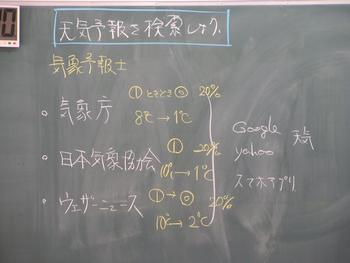 天気予報を検索しよう
気象予報士
・気象庁 ①ときどき◎ 20%
8℃→1℃
・日本気象協会 ① 20%
10℃→1℃
・ウェザーニュース ①→◎ 20%
10℃→2℃
Google 天気
yahoo
スマホアプリ